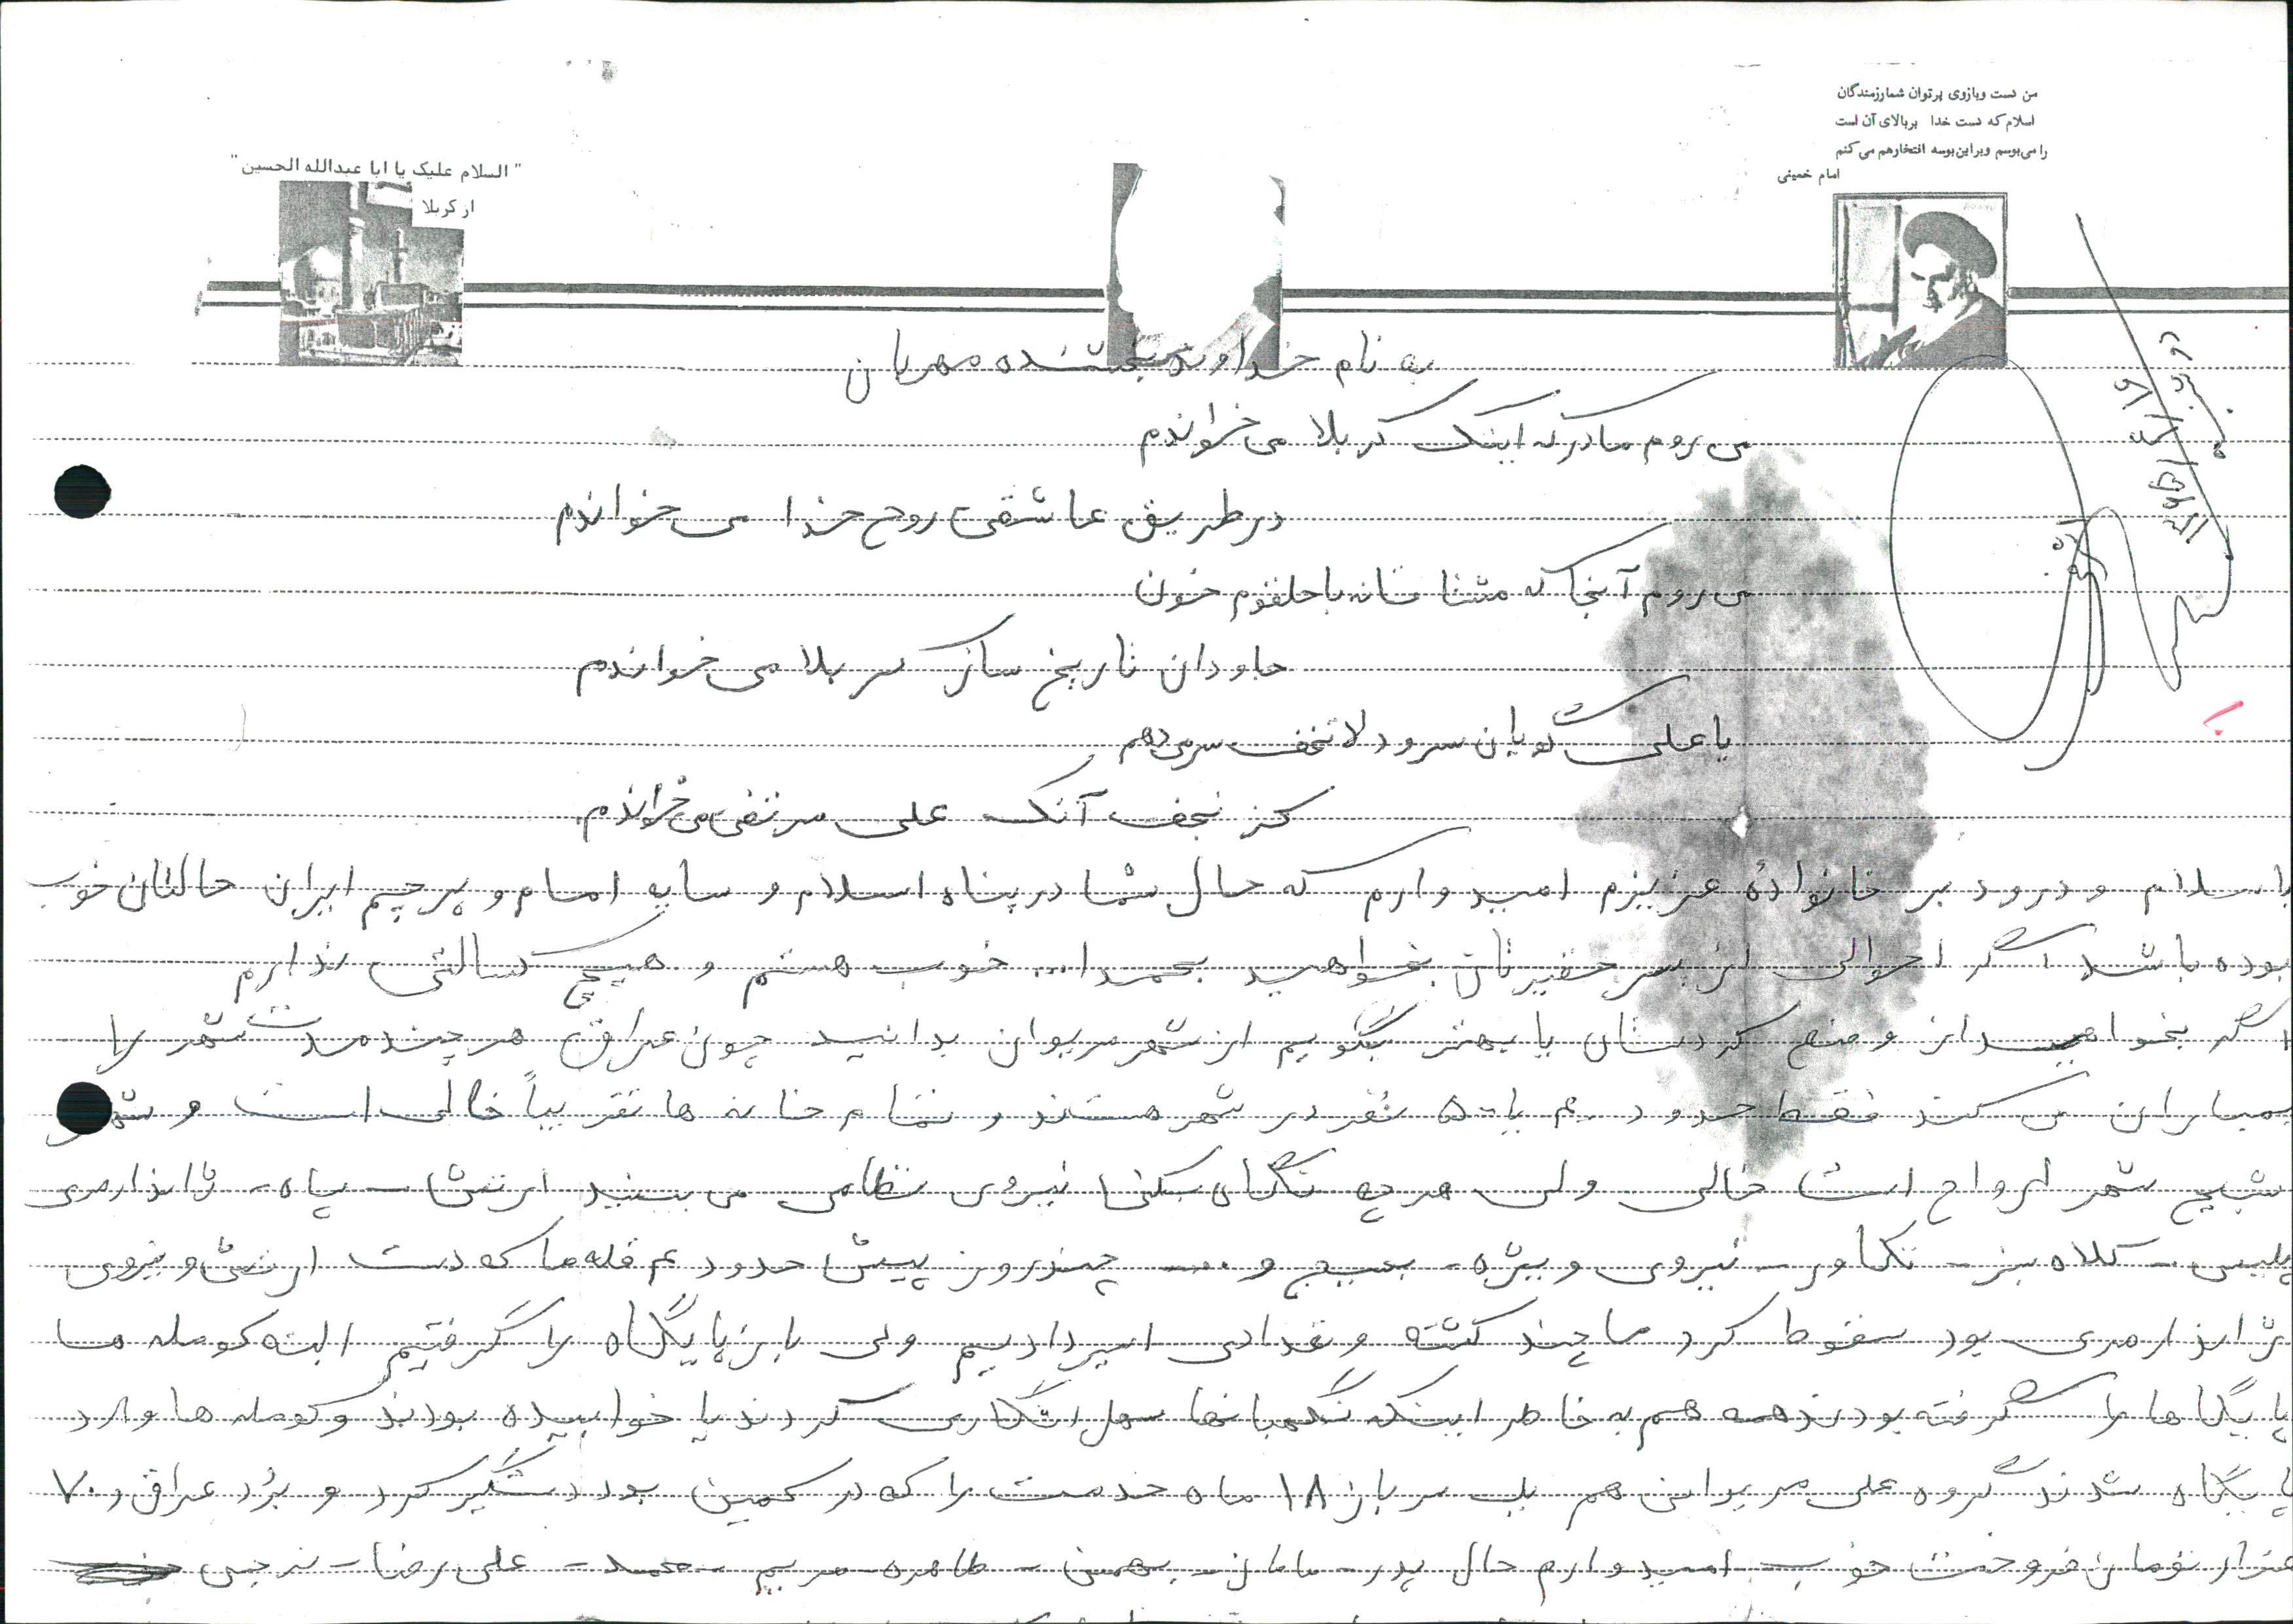 من دست و بازوی پرتوان شمارزمندگان
اسلام که دست خدا بربالای آن است
را می‌بوسم و براین بوسه افتخارهم می کنم
امام خمینی
"السلام علیک یا ابا عبدالله الحسین"
از کربلا
به نام خداوند بخشنده مهربان
می روم مادر که اینک کربلا می خواندم
در طریق عاشقی روح خدا می خواندم
می روم آنجا که مشتاقانه با حلقوم خون
جاودان تاریخ ساز کربلا می خواندم
یا علی گویان سرود لا تخف سر می دهم
کز نجف آنک علی مرتضی می خواندم.
با سلام و درود بر خانوادهٔ عزیزم امیدوارم که حال شما در پناه اسلام و سایه امام و پرچم ایران حالتان خوب
بوده باشد اگر احوالی از پسر حقیرتان بخواهید بحمدا... خوب هستم و هیچ کسالتی ندارم
اگر بخواهید از وضع کردستان یا بهتر بگویم از شهر مریوان بدانید چون عراق هر چند مدت شهر را
بمباران می کند فقط حدود ۴۰ یا ۵۰ نفر در شهر هستند و تمام خانه ها تقریباً خالی است و شهر
شبیح شهر ارواح است خالی ولی هر چه نگاه بکنی نیروی نظامی می بینید ارتش - سپاه - ژاندارمری
پلیس - کلاه سبز - تکاور - نیروی ویژه - بسیج و .... چند روز پیش حدود ۴ قله ما که دست ارتش و نیروی
ژاندارمری بود سقوط کرد ما چند کشته و تعدادی اسیر دادیم ولی باز پایگاه را گرفتیم البته کومله ها
پایگا ها را گرفته بودند همه هم به خاطر اینکه نگهبانها سهل انگاری کردند یا خوابیده بودند و کومله ها وارد
پایگاه شدند گروه علی مریوانی هم یک سرباز ۱۸ ماه خدمت را که در کمین بود دستگیر کرد و بُرد عراق و ۷۰
هزار تومان فروخت خوب امیدوارم حال پدر - مامان - بهمن - طاهره - مریم - محمد - علی رضا - نرجس